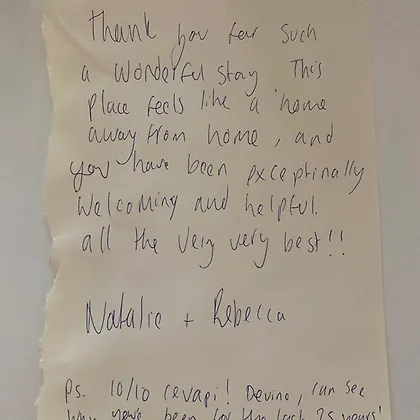 Thank you for such
a wonderful stay This
place feels like a home
away from home, and
you have been exceptinally
welcoming and helpful.
all the very very best!!
Natalie + Rebecca
Ps. 10/10 cevapi! Devine, can see
why you've been for the last 25 years!